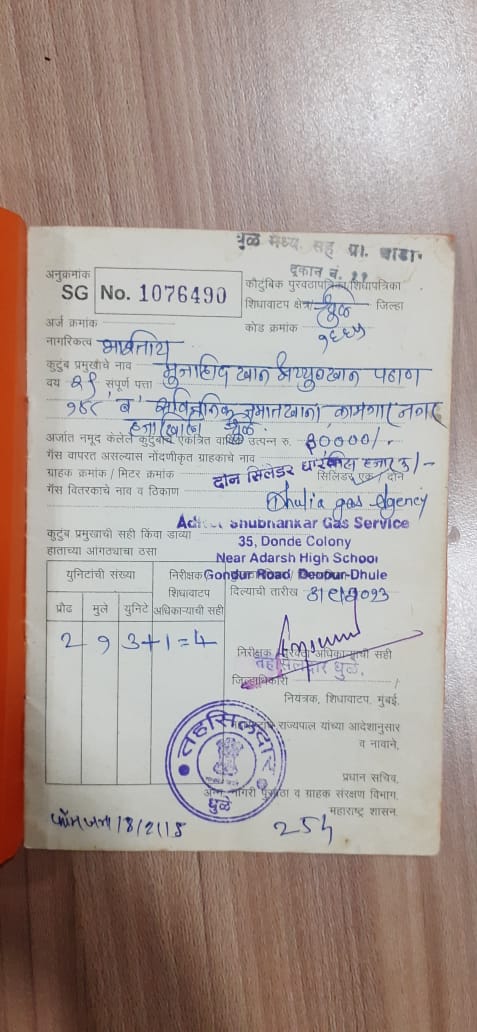 धुळे मध्य. सह. प्रा. भांडा.
दूकान नं. ११
अनुक्रमांक
SG No. 1076490
कौटुंबिक पुरवठापत्रिका/शिधापत्रिका
शिधावाटप क्षेत्र धुळे जिल्हा
अर्ज क्रमांक कोड क्रमांक
नागरिकत्व भारतीय
कुटुंब प्रमुखाचे नाव मुजाहिद खान अय्युबखान पठाण
वय २१ संपूर्ण पत्ता
१४८ ब कामगार नगर
धुळे
अर्जात नमूद केलेले कुटुंबाचे एकत्रित वार्षिक उत्पन्न रु. ३००००/-
गॅस वापरत असल्यास नोंदणीकृत ग्राहकाचे नाव
ग्राहक क्रमांक / मिटर क्रमांक सिलिंडर एक / दोन
दोन सिलेंडर धारक
गॅस वितरकाचे नाव व ठिकाण Dhulia gas Agency
Shubhankar Gas Service
35, Donde Colony
Near Adarsh High School
Gondur Road, Deopur-Dhule
कुटुंब प्रमुखाची सही किंवा डाव्या
हाताच्या आंगठ्याचा ठसा
युनिटांची संख्या निरीक्षक शिधावाटप अधिकाऱ्याची सही
प्रौढ मुले युनिट
2 १ 3+1=4
दिल्याची तारीख
निरीक्षक / पुरवठा अधिकाऱ्याची सही
तहसिलदार धुळे.
जिल्हाधिकारी
नियंत्रक, शिधावाटप, मुंबई.
महाराष्ट्राचे राज्यपाल यांच्या आदेशानुसार
व नावाने,
तहसिलदार
धुळे
प्रधान सचिव,
अन्न, नागरी पुरवठा व ग्राहक संरक्षण विभाग,
महाराष्ट्र शासन.
254